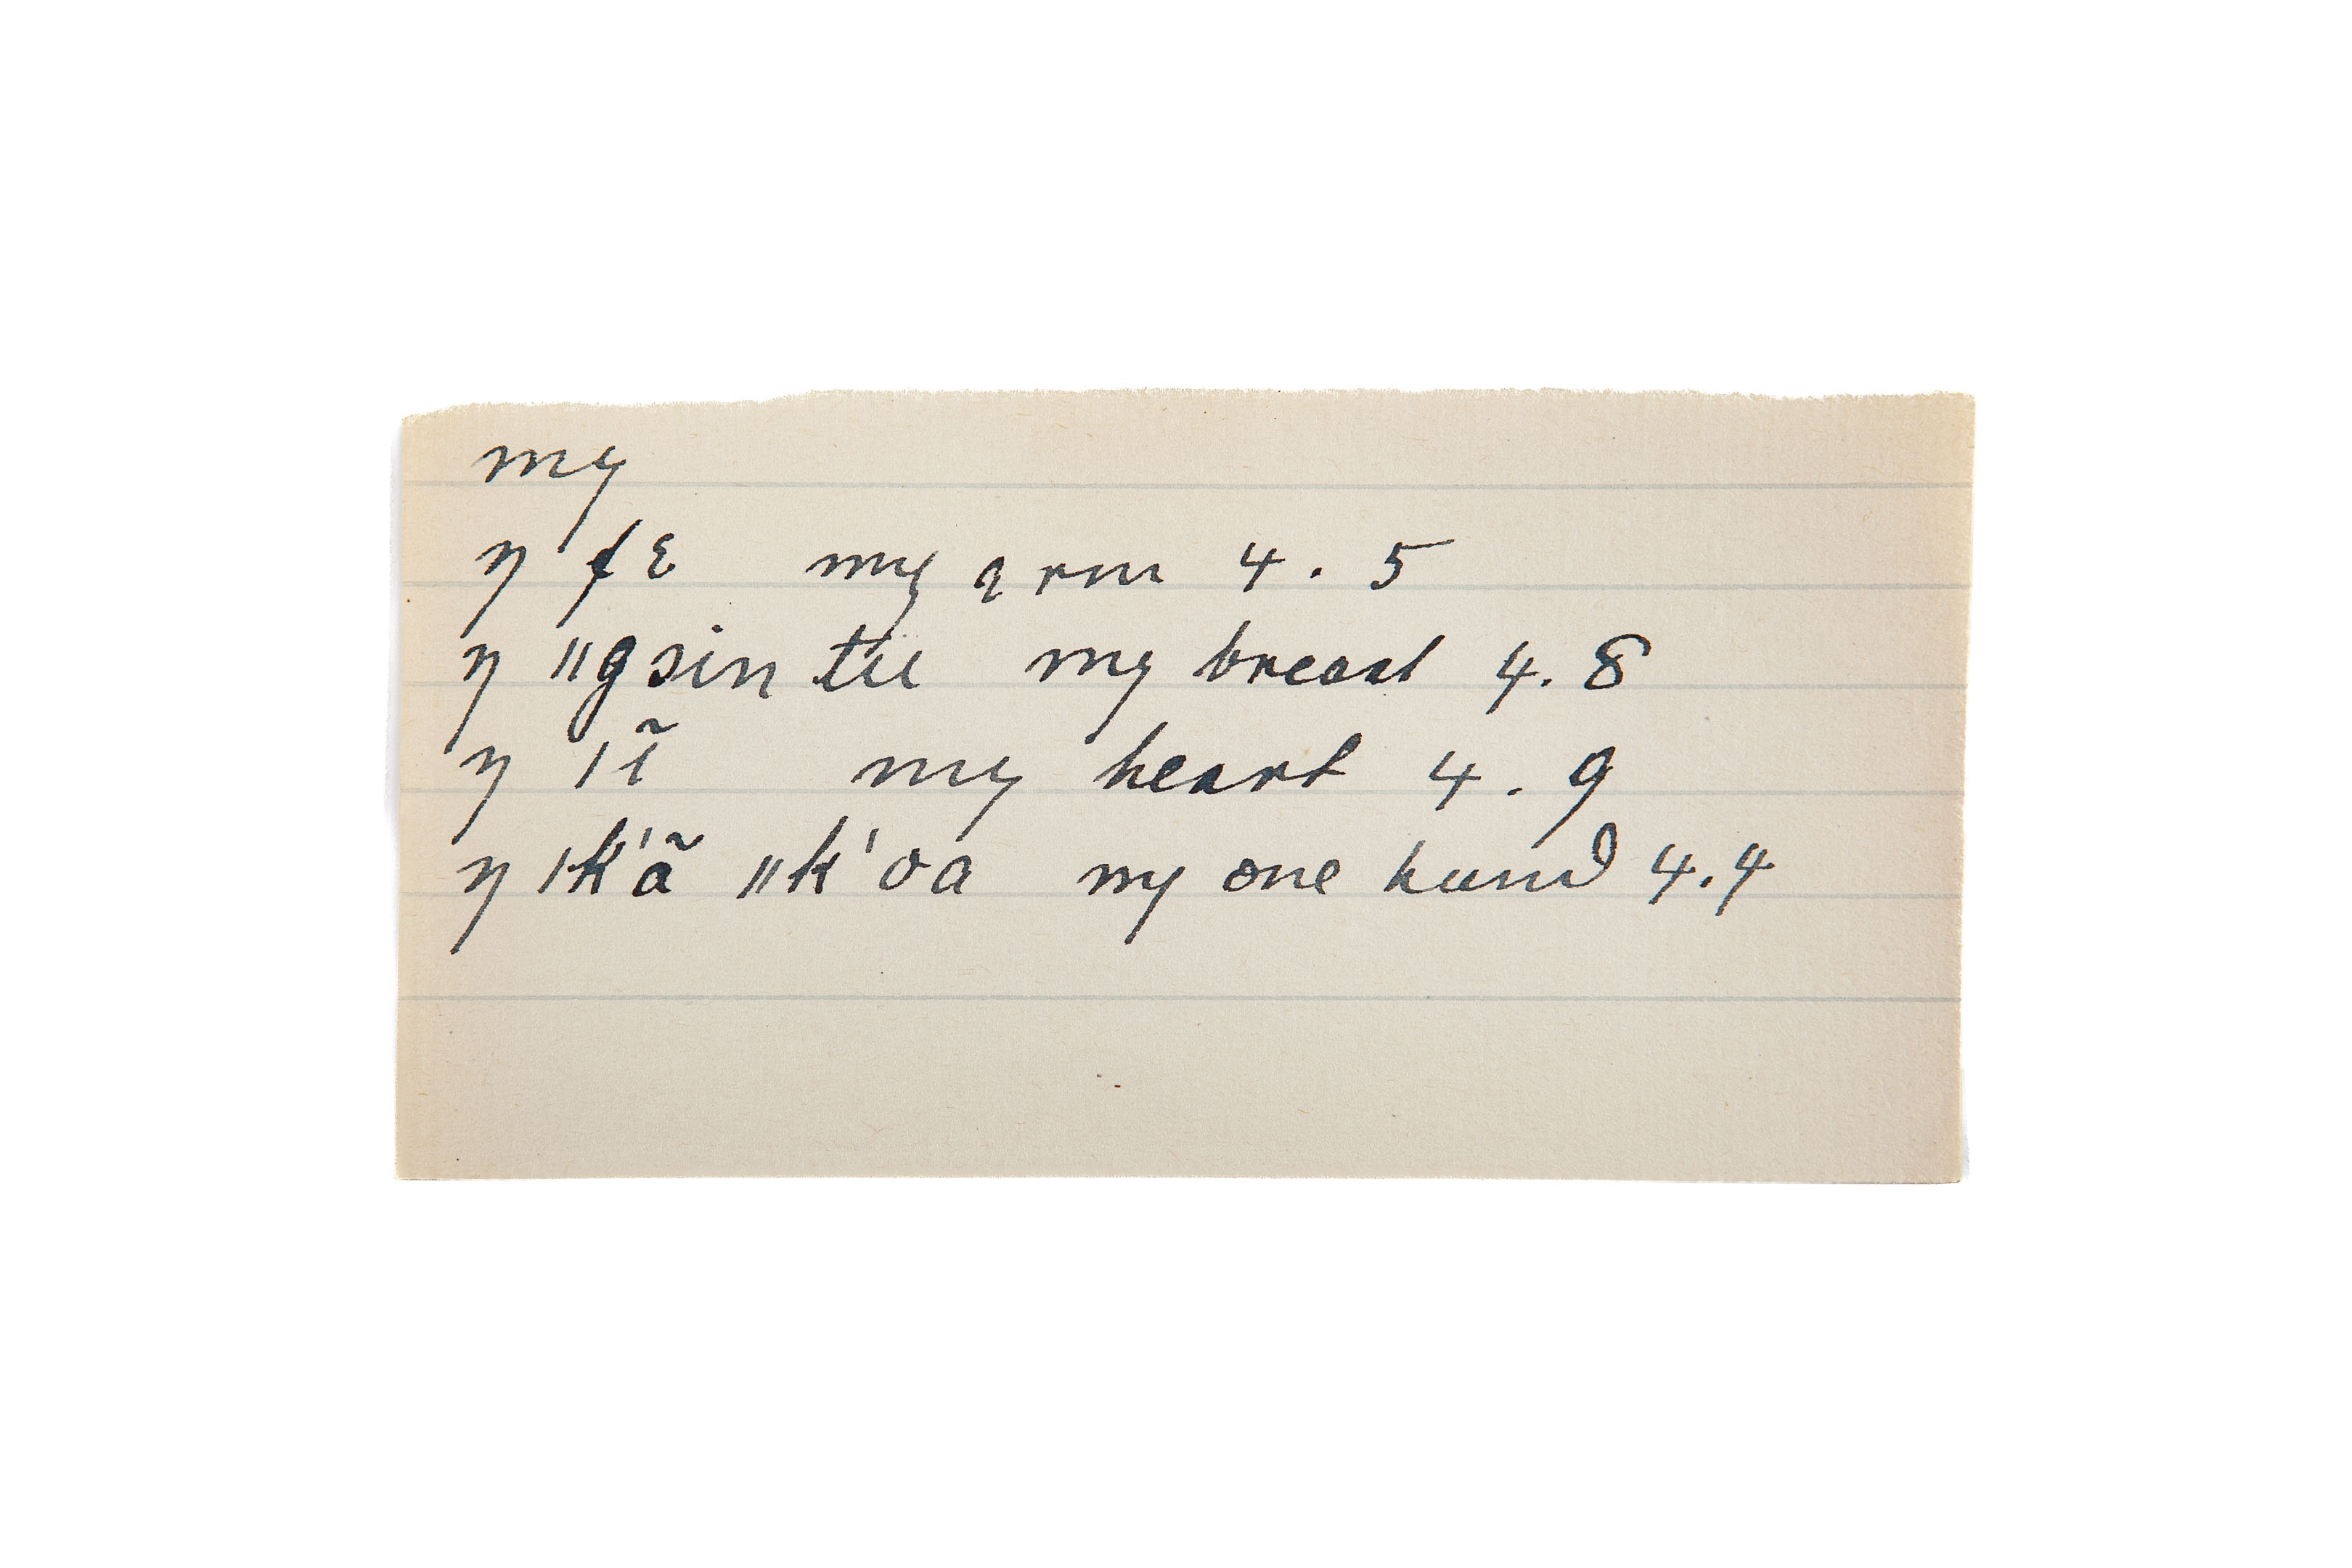 my
ŋ ɬɛ my arm 4.5
ŋ ǁgsin tu my breast 4.8
ŋ ǀĩ my heart 4.9
ŋ ǀk'ã ǁk'oa my one hand 4.4